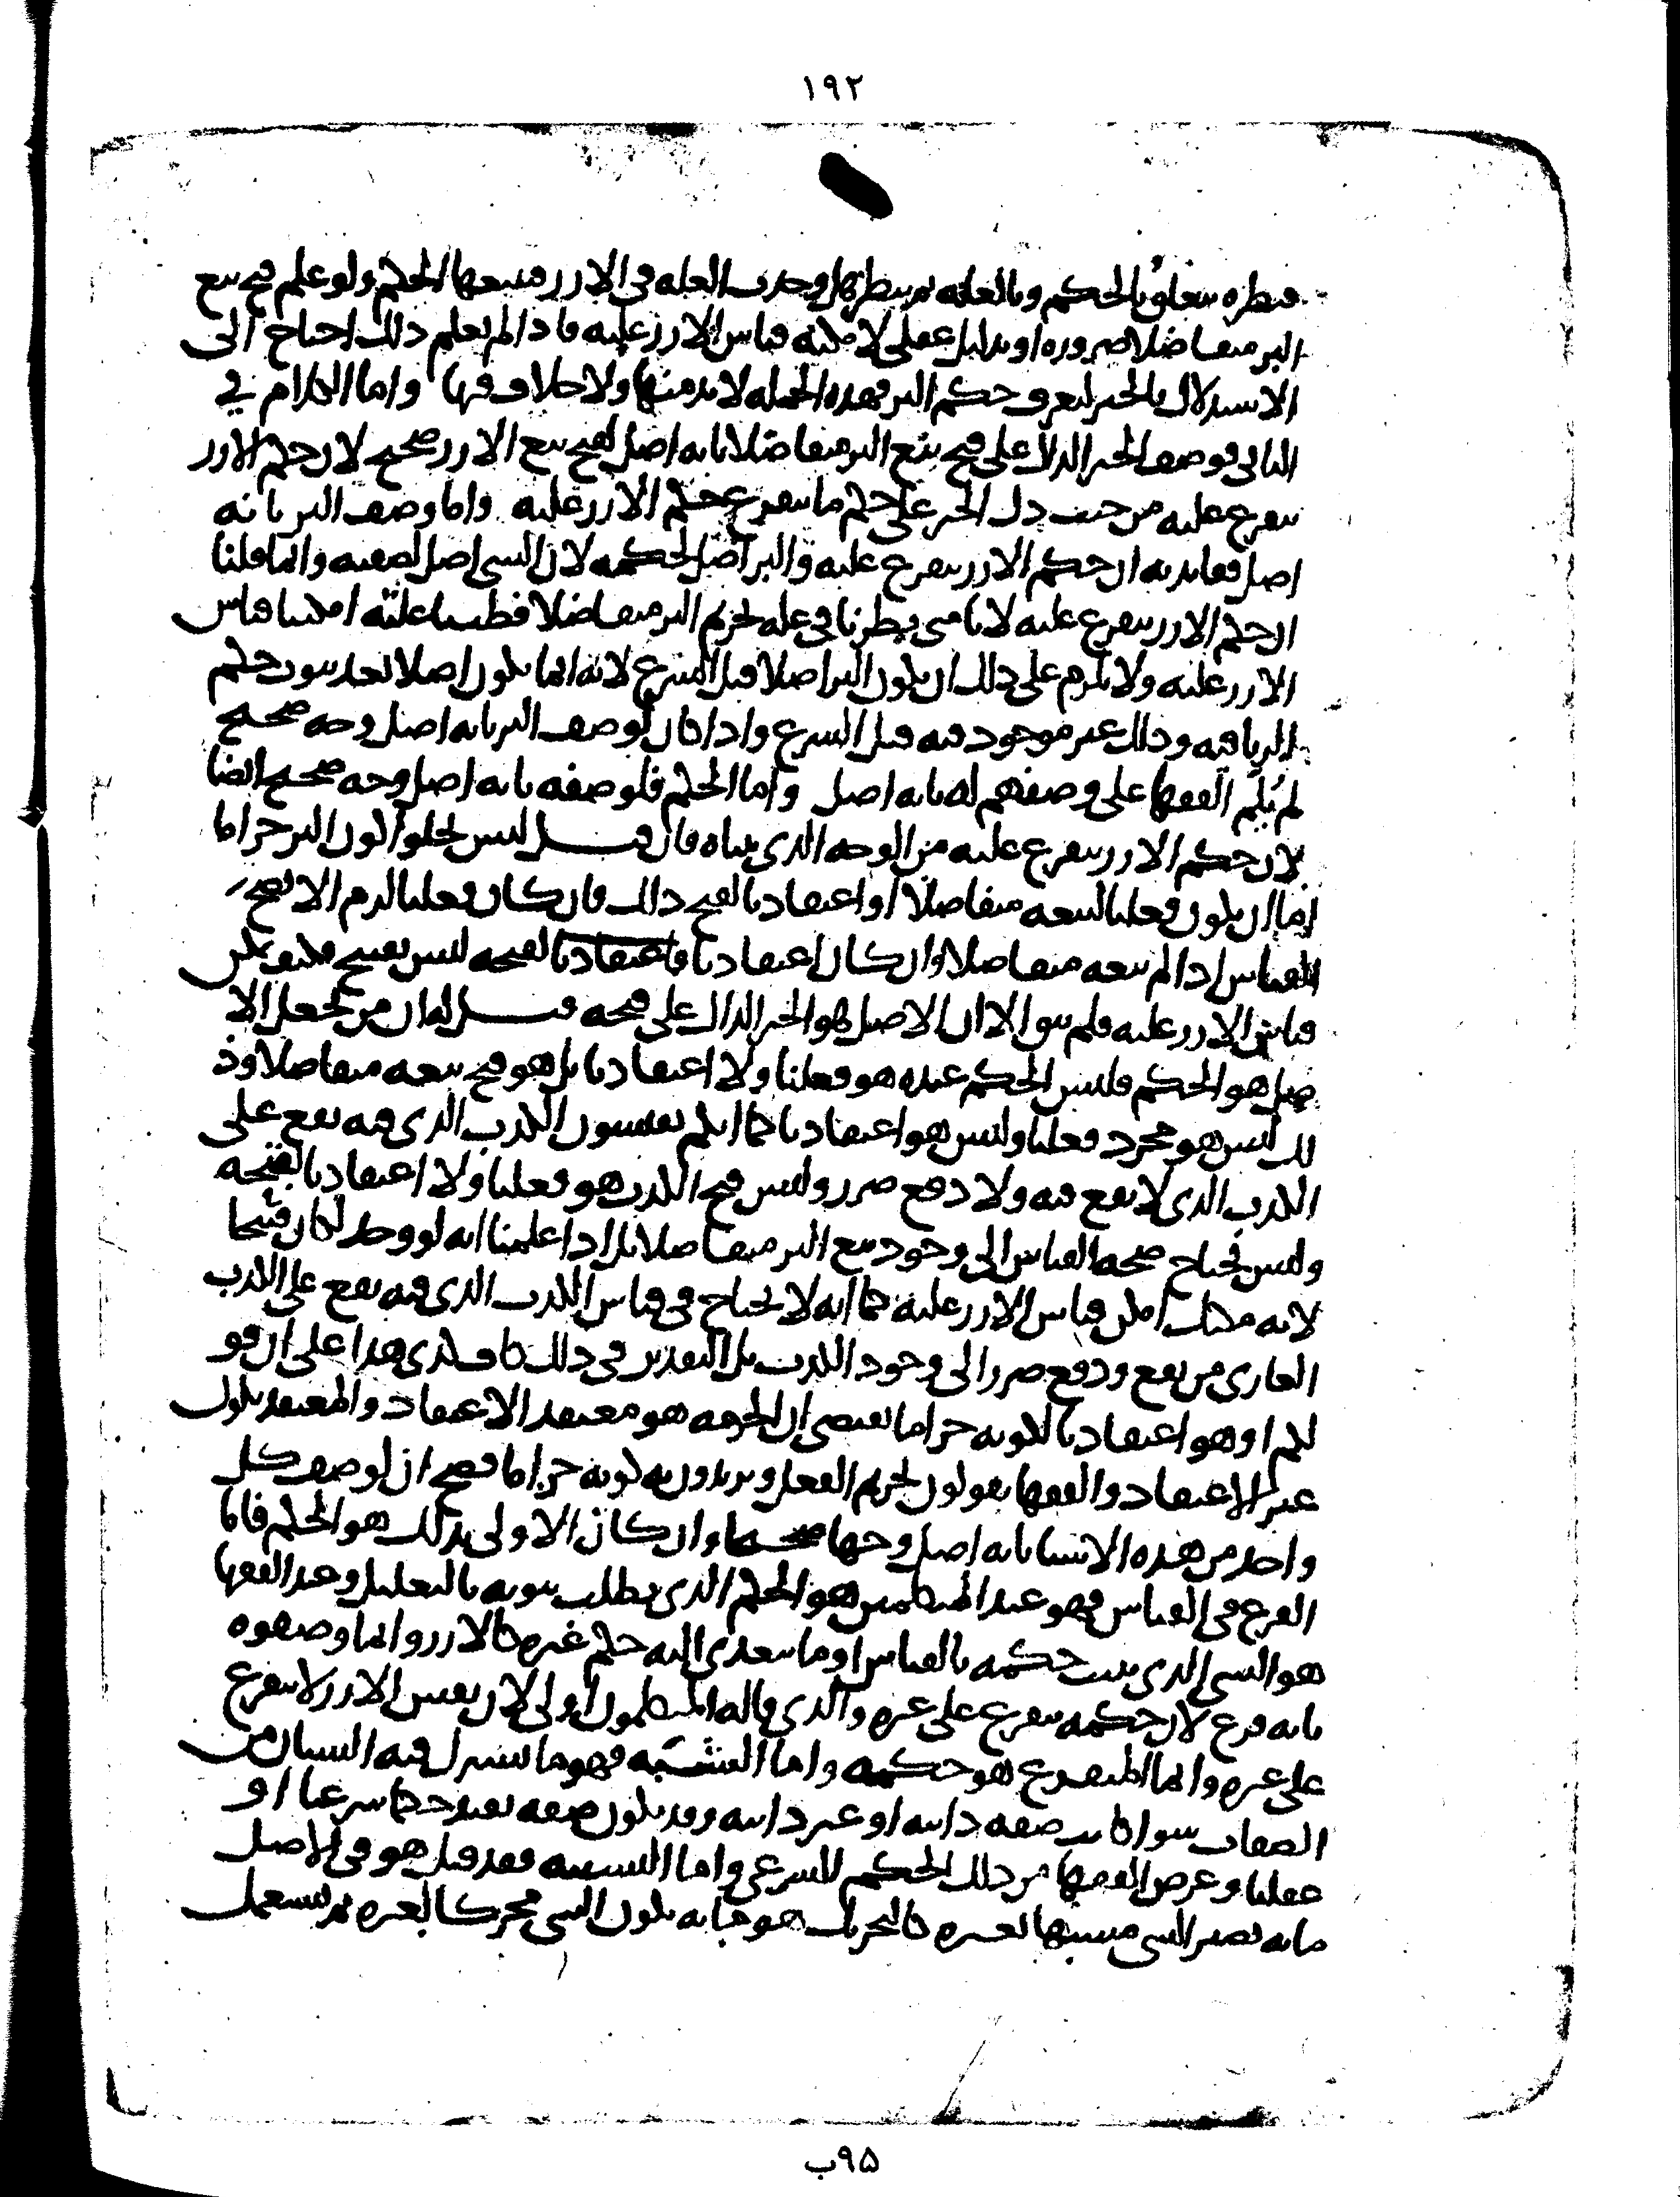 ١٩٢
فنظره يتعلق بالحكم وبالعلة ثم ينظر هل وجدت العلة في الارز فيتبعها الحكم ولو علم قبح بيع
البر متفاضلا ضرورة او بدليل عقلي لامكنه قياس الارز عليه فاذا لم يعلم ذلك احتاج الى
الاستدلال بالخبر ليعرف حكم البر فهذه الجملة لا بد منها ولا خلاف فيها واما الكلام في
الثاني فوصف الخبر الدال على قبح بيع البر متفاضلا بانه اصل لقبح بيع الارز صحيح لان حكم الارز
يتفرع عليه من حيث دل الخبر على حكم ما يتفرع حكم الارز عليه واما وصف البر بانه
اصل فمايد به ان حكم الارز يتفرع عليه والبر اصل لحكمه لان الشي اصل لصفته وانما قلنا
ان حكم الارز يتفرع عليه لانا متى نظرنا في علة تحريم البر متفاضلا فطلبنا علته امكننا قياس
الارز عليه ولا يلزم على ذلك ان يكون البر اصلا قبل الشرع لانه انما يكون اصلا بعد ثبوت حكم
الربا فيه وذلك غير موجود فيه قبل الشرع واذا كان لوصف البر بانه اصل وجه صحيح
لم يلم الفقها على وصفهم له بانه اصل واما الحكم فلوصفه بانه اصل وجه صحيح ايضا
لان حكم الارز يتفرع عليه من الوجه الذي بيناه فان قيل ليس يخلو كون البر حراما
اما ان يكون فعلنا لبيعه متفاضلا او اعتقادنا لقبح ذلك فان كان فعلنا لزم الا يصح
القياس اذا لم نبعه متفاضلا وان كان اعتقادنا فاعتقادنا لقبحه ليس بقبيح فكيف يمكن
قياس الارز عليه فلم يبق الا ان الاصل هو الخبر الدال على قبحه قيل له ان من يجعل الا
صل هو الحكم فليس الحكم عنده هو فعلنا ولا اعتقادنا بل هو قبح بيعه متفاضلا وذ
لك ليس هو مجرد فعلنا وليس هو اعتقادنا كما انكم تقيسون الكذب الذي فيه نفع على
الكذب الذي لا نفع فيه ولا دفع ضرر وليس قبح الكذب هو فعلنا ولا اعتقادنا لقبحه
وليس يحتاج صحة القياس الى وجود بيع البر متفاضلا بل اذا علمنا انه لو وجد لكان قبيحا
لانه مكيل امكن قياس الارز عليه كما انه لا يحتاج في قياس الكذب الذي فيه نفع على الكذب
العاري من نفع ودفع ضرر الى وجود الكذب بل التقدير في ذلك كاف هذا على ان قو
لكم او هو اعتقادنا لكونه حراما يقتضي ان الحرمة هو معتقد الاعتقاد والمعتقد يكون
غير الاعتقاد والفقها يقولون تحريم الفعل ويريدون به كونه حراما فصح ان لوصف كل
واحد من هذه الاشيا بانه اصل وجها صحيحا وان كان الاولى بذلك هو الحكم فاما
الفرع في القياس فهو عند المتكلمين هو الحكم الذي يطلب ثبوته بالتعليل وعند الفقها
هو الشي الذي يثبت حكمه بالقياس او ما يتعدى اليه حكم غيره كالارز وانما وصفوه
بانه فرع لان حكمه يتفرع على غيره والذي قاله المتكلمون اولى لان نفس الارز لا يتفرع
على غيره وانما المتفرع هو حكمه واما الشبه فهو ما يشترك فيه الشيئان من
الصفات سوا كانت صفة ذاتية او غير ذاتية وقد يكون صفة تفيد حكما شرعيا او
عقليا وغرض الفقها من ذلك الحكم الشرعي واما التشبيه فقد قيل هو في الاصل
ما به يصير الشي مشبها لغيره كالتحريك هو ما به يكون الشي محركا لغيره ثم يستعمل
٩٥ب